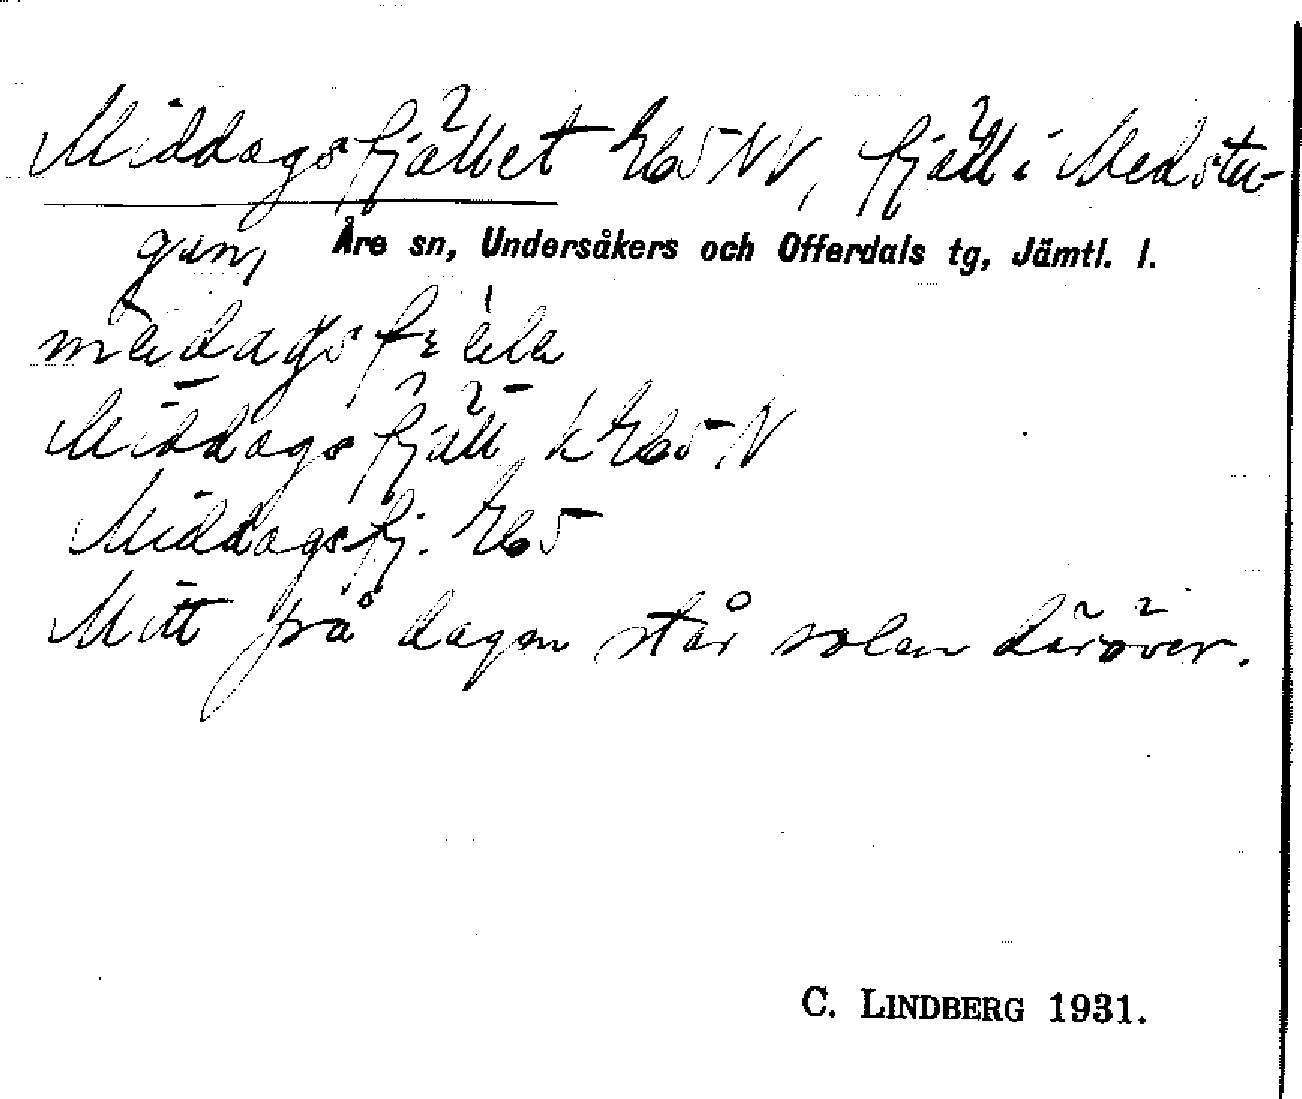 Middagsfjället Åb5NV, fjäll i Medstu-
gan, Åre sn, Undersåkers och Offerdals tg, Jämtl. l.
Middagsfjäll k Åb5 N
Middagsfj. Åb5
Mitt på dagen står solen däröver.
C. LINDBERG 1931.